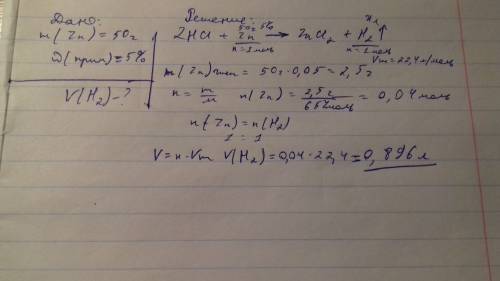 Дано:
m(Zn) = 50г
ω(прим) = 5%
V(H₂) - ?
Решение:
50г 5% x л
2HCl + Zn → ZnCl₂ + H₂↑
n=1моль n=1моль
Vm=22,4 л/моль
= 50г·0,05 = 2,5г
n = m/M n(Zn) = 2,5г/65г/моль = 0,04 моль
n(Zn) = n(H₂)
1 = 1
V = n·Vm V(H₂) = 0,04·22,4 = 0,896 л